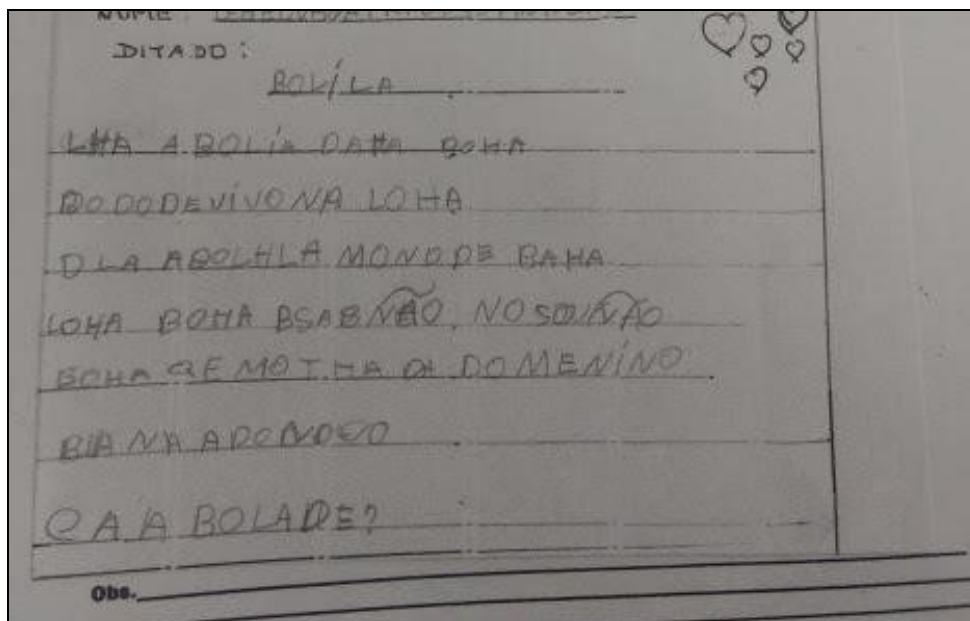 NOME:
DITADO:
BOLÍLA
LHA A BOLÍA DAHA BOHA
BODODEVIVONA LOHA
DLA ABOLHLA MONDDE BAHA
LOHA BOHA BSABNÃO. NOSOINÃO
BOHA QE MOTHA DI DOMENÍNO.
BIANA ADONDEO
CAA BOLADE?
Obs.